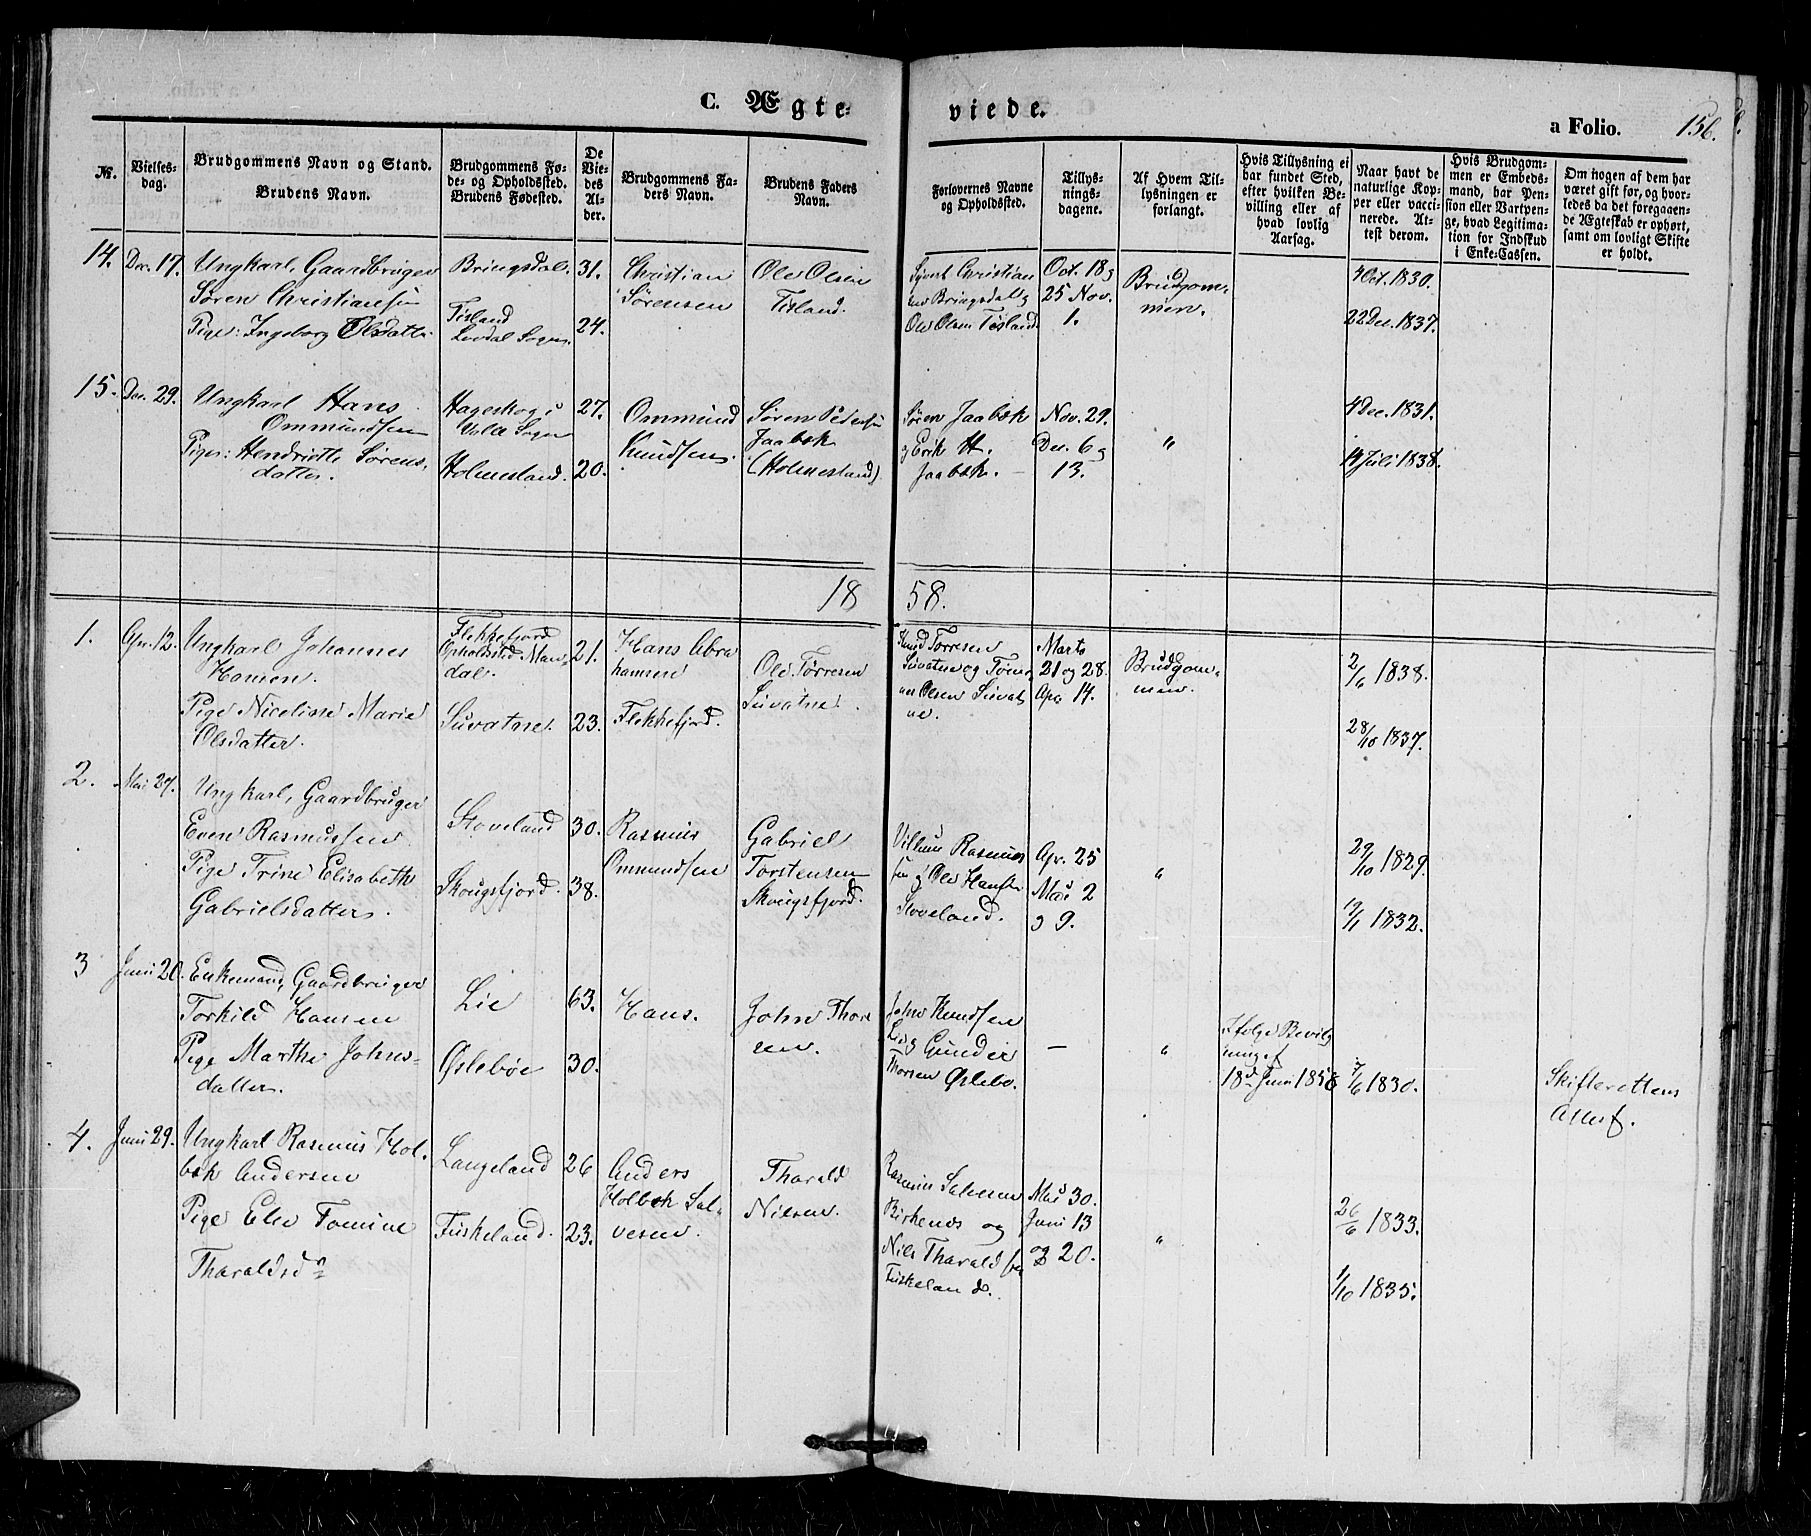 C. Ægte-
viede.
a Folio. 156.
№.
Vielses-
dag.
Brudgommens Navn og Stand.
Brudens Navn.
Brudgommens Fø-
de- og Opholdssted.
Brudens Fødested.
De
Vie-
des
Al-
der.
Brudgommens Fa-
ders Navn.
Brudens Faders
Navn.
Forlovernes Navne
og Opholdssted.
Tillys-
nings-
dagene.
Af Hvem Til-
lysningen er
forlangt.
Hvis Tillysning ei
har fundet Sted,
efter hvilken Be-
villing eller af
hvad lovlig
Aarsag.
Naar havt de
naturlige Kop-
per eller vacci-
nerede. At-
test derom.
Hvis Brudgom-
men er Embeds-
mand, har Pen-
sion eller Vartpen-
ge, hvad Legitima-
tion for Indskud
i Enke-Cassen.
Om nogen af dem har
været gift før, og hvor-
ledes da det foregaaen-
de Ægteskab er ophørt,
samt om lovligt Skifte
er holdt.
14. Dec. 17.
Ungkarl, Gaardbruger
Søren Christiansen
Pige: Ingeborg Olsdatter
Bringsdal.
Tisland
Sogn.
31.
24.
Christian
Sørensen
Ole Olsen
Tisland.
Christian
Bringsdal og
Ole Olsen Tisland
Oct. 18 g
25 Nov.
1.
Brudgom-
men.
4 Oct. 1830.
22 Dec. 1837.
15. Dec. 29.
Ungkarl Hans
Ommundsen
Pige: Hendriette Sørens-
datter.
Hageskog i
Sogn
Holmesland.
27.
20.
Ommund
Knudsen
Søren Pedersen
Jaabæk
(Holmesland)
Søren Jaabæk
g Erik H.
Jaabæk.
Nov. 29.
Dec. 6 g
13.
"
4 Dec. 1831.
14 Juli 1838.
18 58.
1. Apr. 12.
Ungkarl Johannes
Hansen.
Pige Nicoline Marie
Olsdatter.
Flekkefjord
Opholdssted Man-
dal.
Suvatne.
21.
23.
Hans Abra
hamsen
Flekkefjord.
Ole Tørresen
Suvatne.
Knud Torresen
Suvatne og
Olsen Suvat
ne.
Marts
21 og 28.
Apr. 14.
Brudgom-
men.
2/6 1838.
28/10 1837.
2. Mai 27.
Ungkarl, Gaardbruger
Even Rasmussen
Pige Trine Elisabeth
Gabrielsdatter.
Stoveland
Skougsfjord.
30.
38.
Rasmus
Ommundsen
Gabriel
Torstensen
Skougsfjord.
Villum Rasmus
sen g Ole Hansen
Stoveland.
Apr. 25
Mai 2
g 9.
"
29/10 1829.
1832.
3 Juni 20.
Enkemand, Gaardbruger
Torkild Hansen
Pige Marthe Johns-
datter.
Lie
Øslebøe
63.
30.
Hans.
John Thor
sen.
John Knudsen
Lie g Gunder
Thorsen Øslebø.
—
"
Ifølge Bevilg
ning af
18d Juni 1858
7/6 1830.
Skifterettens
Attest.
4. Juni 29.
Ungkarl Rasmus Hol-
bæk Andersen
Pige Elie Tomine
Tharaldsdr
Langeland
Fuskeland.
26
23.
Anders
Holbæk Sal-
vesen.
Tharald
Nilsen.
Rasmus Salvesen
Birkenes og
Nils Tharaldsen
Fuskeland.
Mai 30.
Juni 13
og 20.
"
26/6 1833.
1/10 1835.